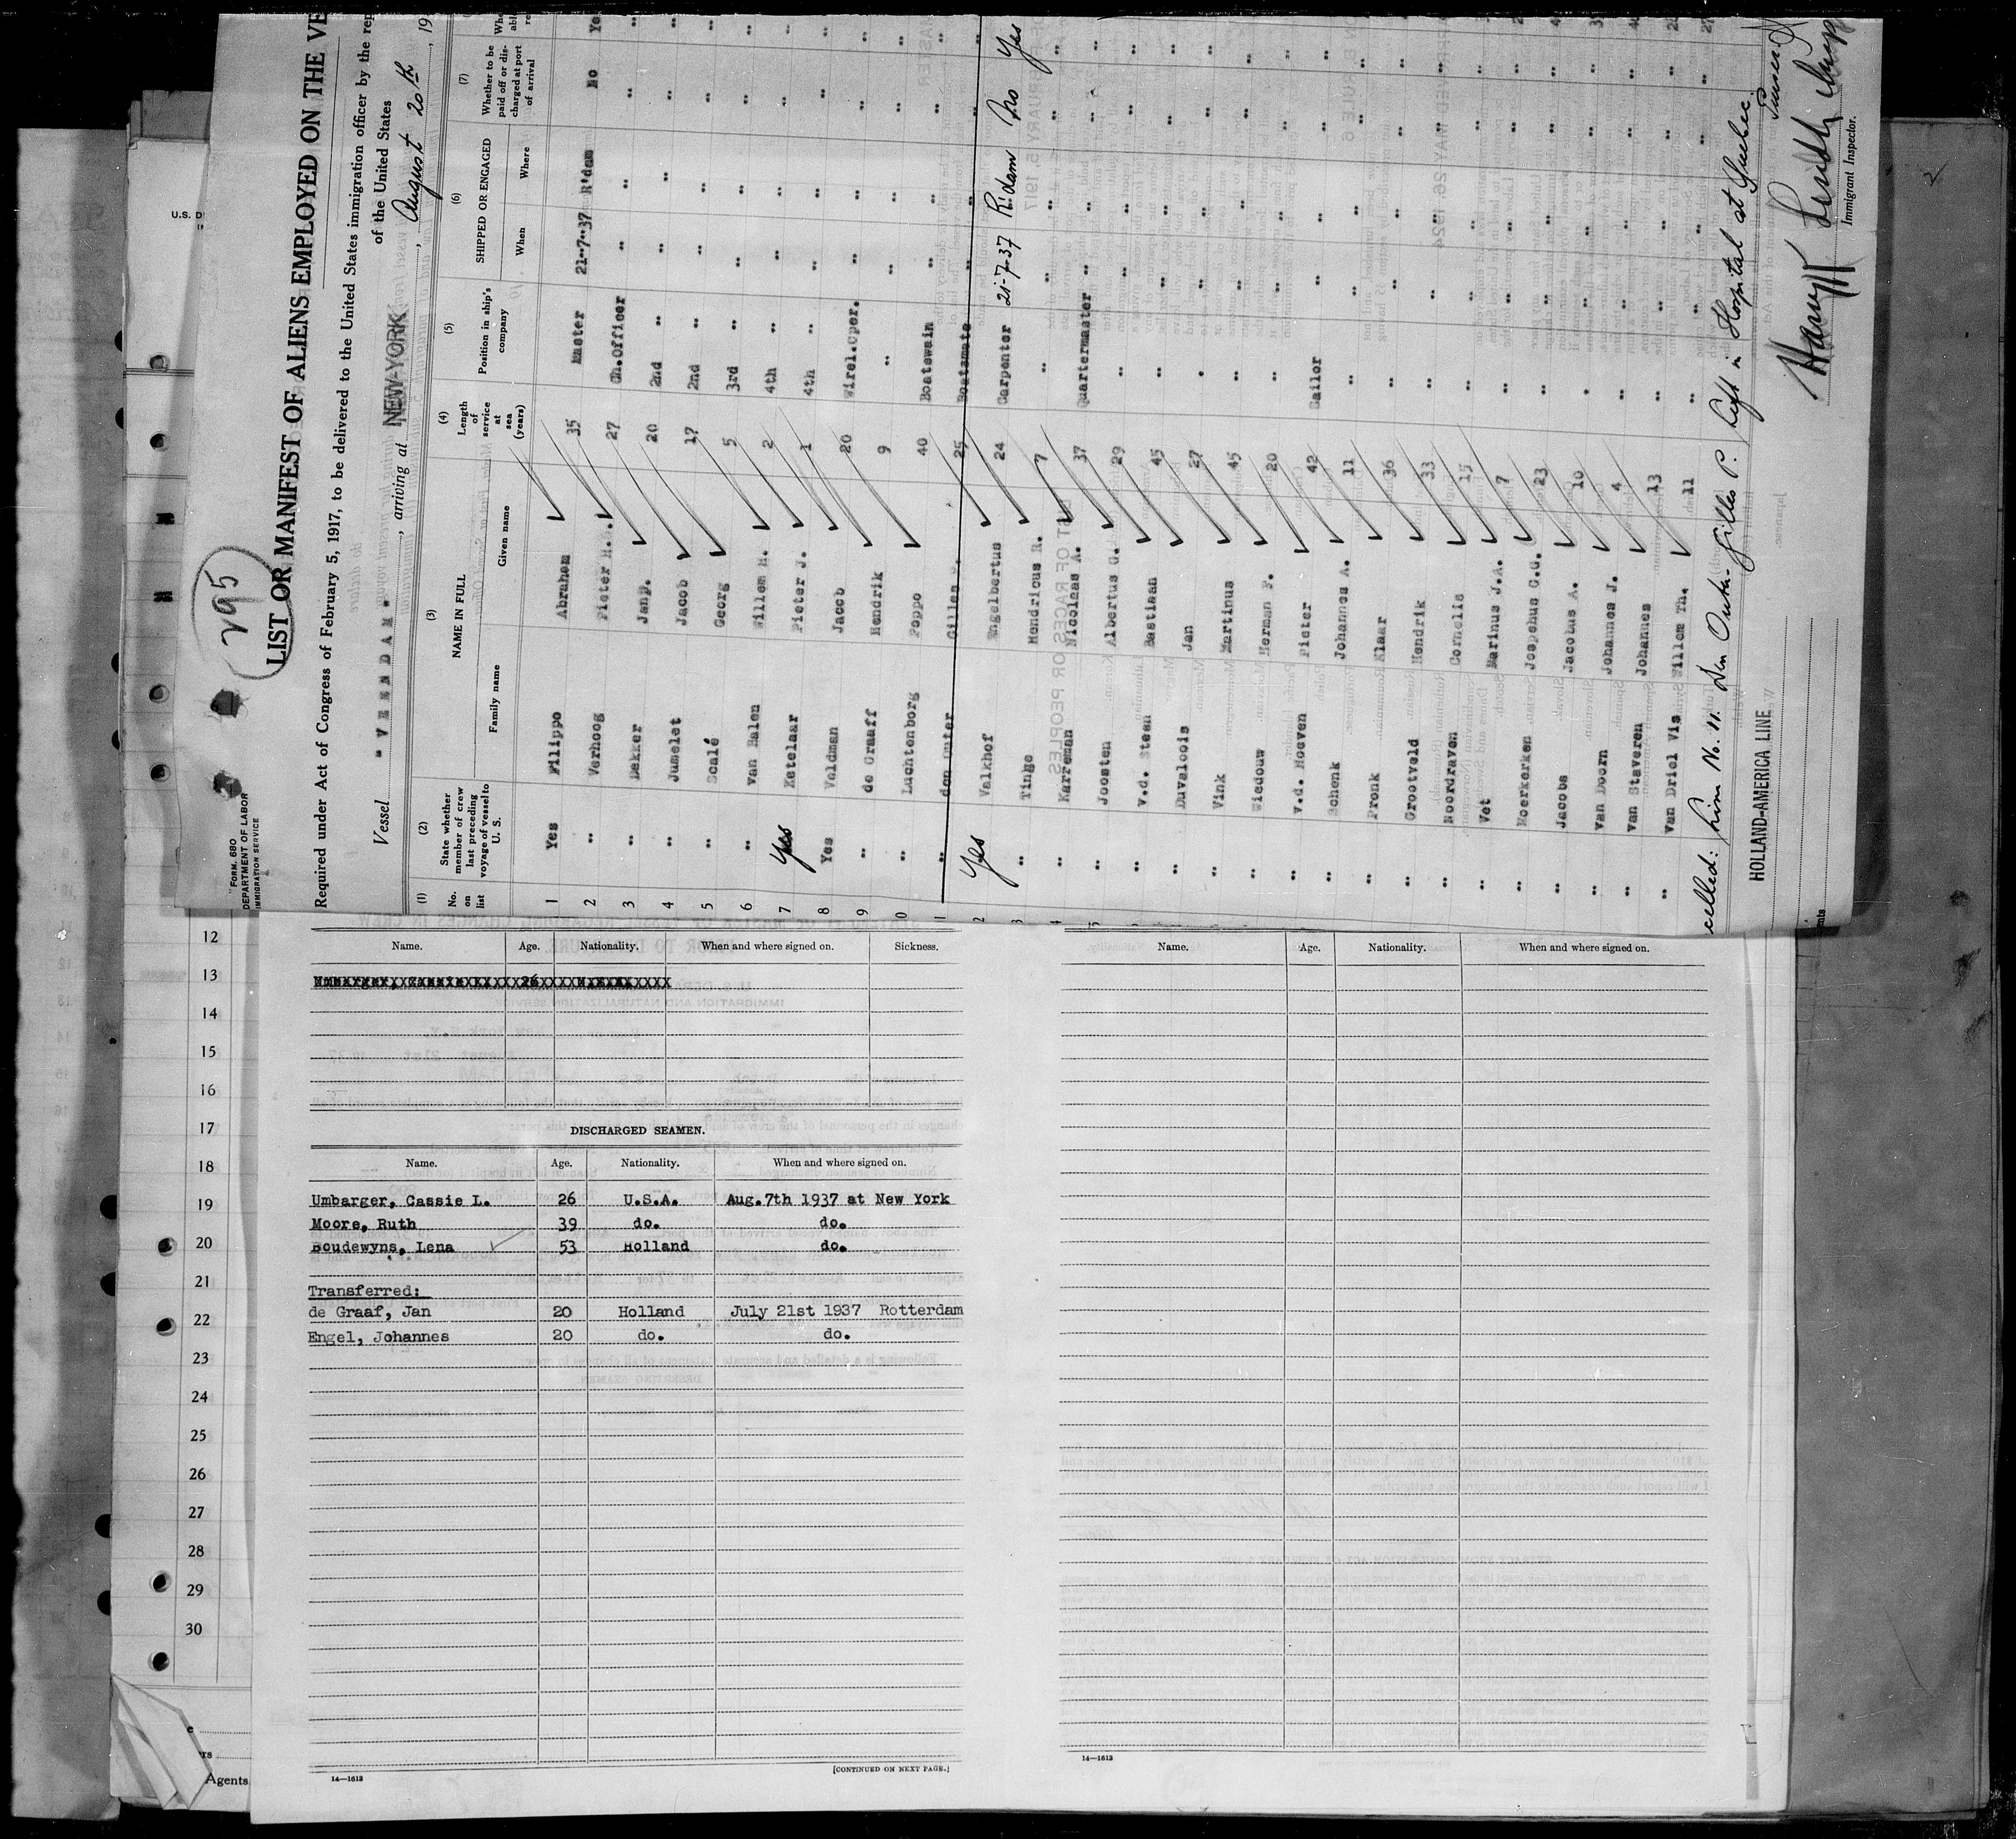 295
LIST OR MANIFEST OF ALIENS EMPLOYED ON THE VE
Required under Act of Congress of February 5, 1917, to be delivered to the United States immigration officer by the rep
of the United States
Vessel "VEENDAM", arriving at NEW-YORK, August 20th, 19
FORM 680
DEPARTMENT OF LABOR
IMMIGRATION SERVICE
(1) (2) (3) (4) (5) (6) (7)
No. on list State whether member of crew last preceding voyage of vessel to U. S. NAME IN FULL Length of service at sea (years) Position in ship's company SHIPPED OR ENGAGED Whether to be paid off or discharged at port of arrival
Family name Given name When Where
1 Yes Filippo Abraham 35 Master 21-7-37 R'dam No Ye
2 " Verhoog Pieter H. 27 Ch.Officer " " " "
3 " Dekker Janp. 20 2nd " " " " "
4 " Jumelet Jacob 17 2nd " " " " "
5 " Scalé Georg 5 3rd " " " " "
6 " van Halen Willem H. 2 4th " " " " "
7 Yes Ketelaar Pieter J. 1 4th " " " " "
8 Yes Veldman Jacob 20 Wirel.Oper. " " " "
9 " de Graaff Hendrik 9 " " " " "
10 " Luchtenborg Poppo 40 Boatswain " " " "
1 " den Outer Gilles P. 25 Boatsmate " " " "
2 Yes Valkhof Engelbertus 24 Carpenter 21-7-37 R'dam No Yes
3 " Tinge Hendricus R. 7 " " " " "
4 " Karreman Nicolaas A. 37 Quartermaster " " " "
5 " Joosten Albertus G. 29 " " " " "
" v.d. Steen Bastiaan 45 " " " " "
" Duvalois Jan 27 " " " " "
" Vink Martinus 45 " " " " "
" Wiedouw Herman F. 20 " " " " "
" v.d. Hoeven Pieter 42 Sailor " " " "
" Schenk Johannes A. 11 " " " " "
" Pronk Klaar 36 " " " " "
" Grootveld Hendrik 33 " " " " "
" Noordraven Cornelis 15 " " " " "
" Vet Marinus J.A. 7 " " " " "
" Moerkerken Josephus C.G. 23 " " " " "
" Jacobs Jacobus A. 10 " " " " "
" van Doorn Johannes J. 4 " " " " "
" van Staveren Johannes 13 " " " " "
" van Driel Vis Willem Th. 11 " " " " "
celled: Line No. 11. Den Outer Gilles P. left in Hospital at Quebec.
HOLLAND-AMERICA LINE
Immigrant Inspector.
U.S. D
2
12
13
14
15
16
17
18
19
20
21
22
23
24
25
26
27
28
29
30
Agents
Name. Age. Nationality. When and where signed on. Sickness.
Umbarger, Cassie L. 26 U.S.A.
DISCHARGED SEAMEN.
Name. Age. Nationality. When and where signed on.
Umbarger, Cassie L. 26 U.S.A. Aug.7th 1937 at New York
Moore, Ruth 39 do. do.
Boudewyns, Lena 53 Holland do.
Transferred:
de Graaf, Jan 20 Holland July 21st 1937 Rotterdam
Engel, Johannes 20 do. do.
14—1613
[CONTINUED ON NEXT PAGE.]
Name. Age. Nationality. When and where signed on.
14—1613